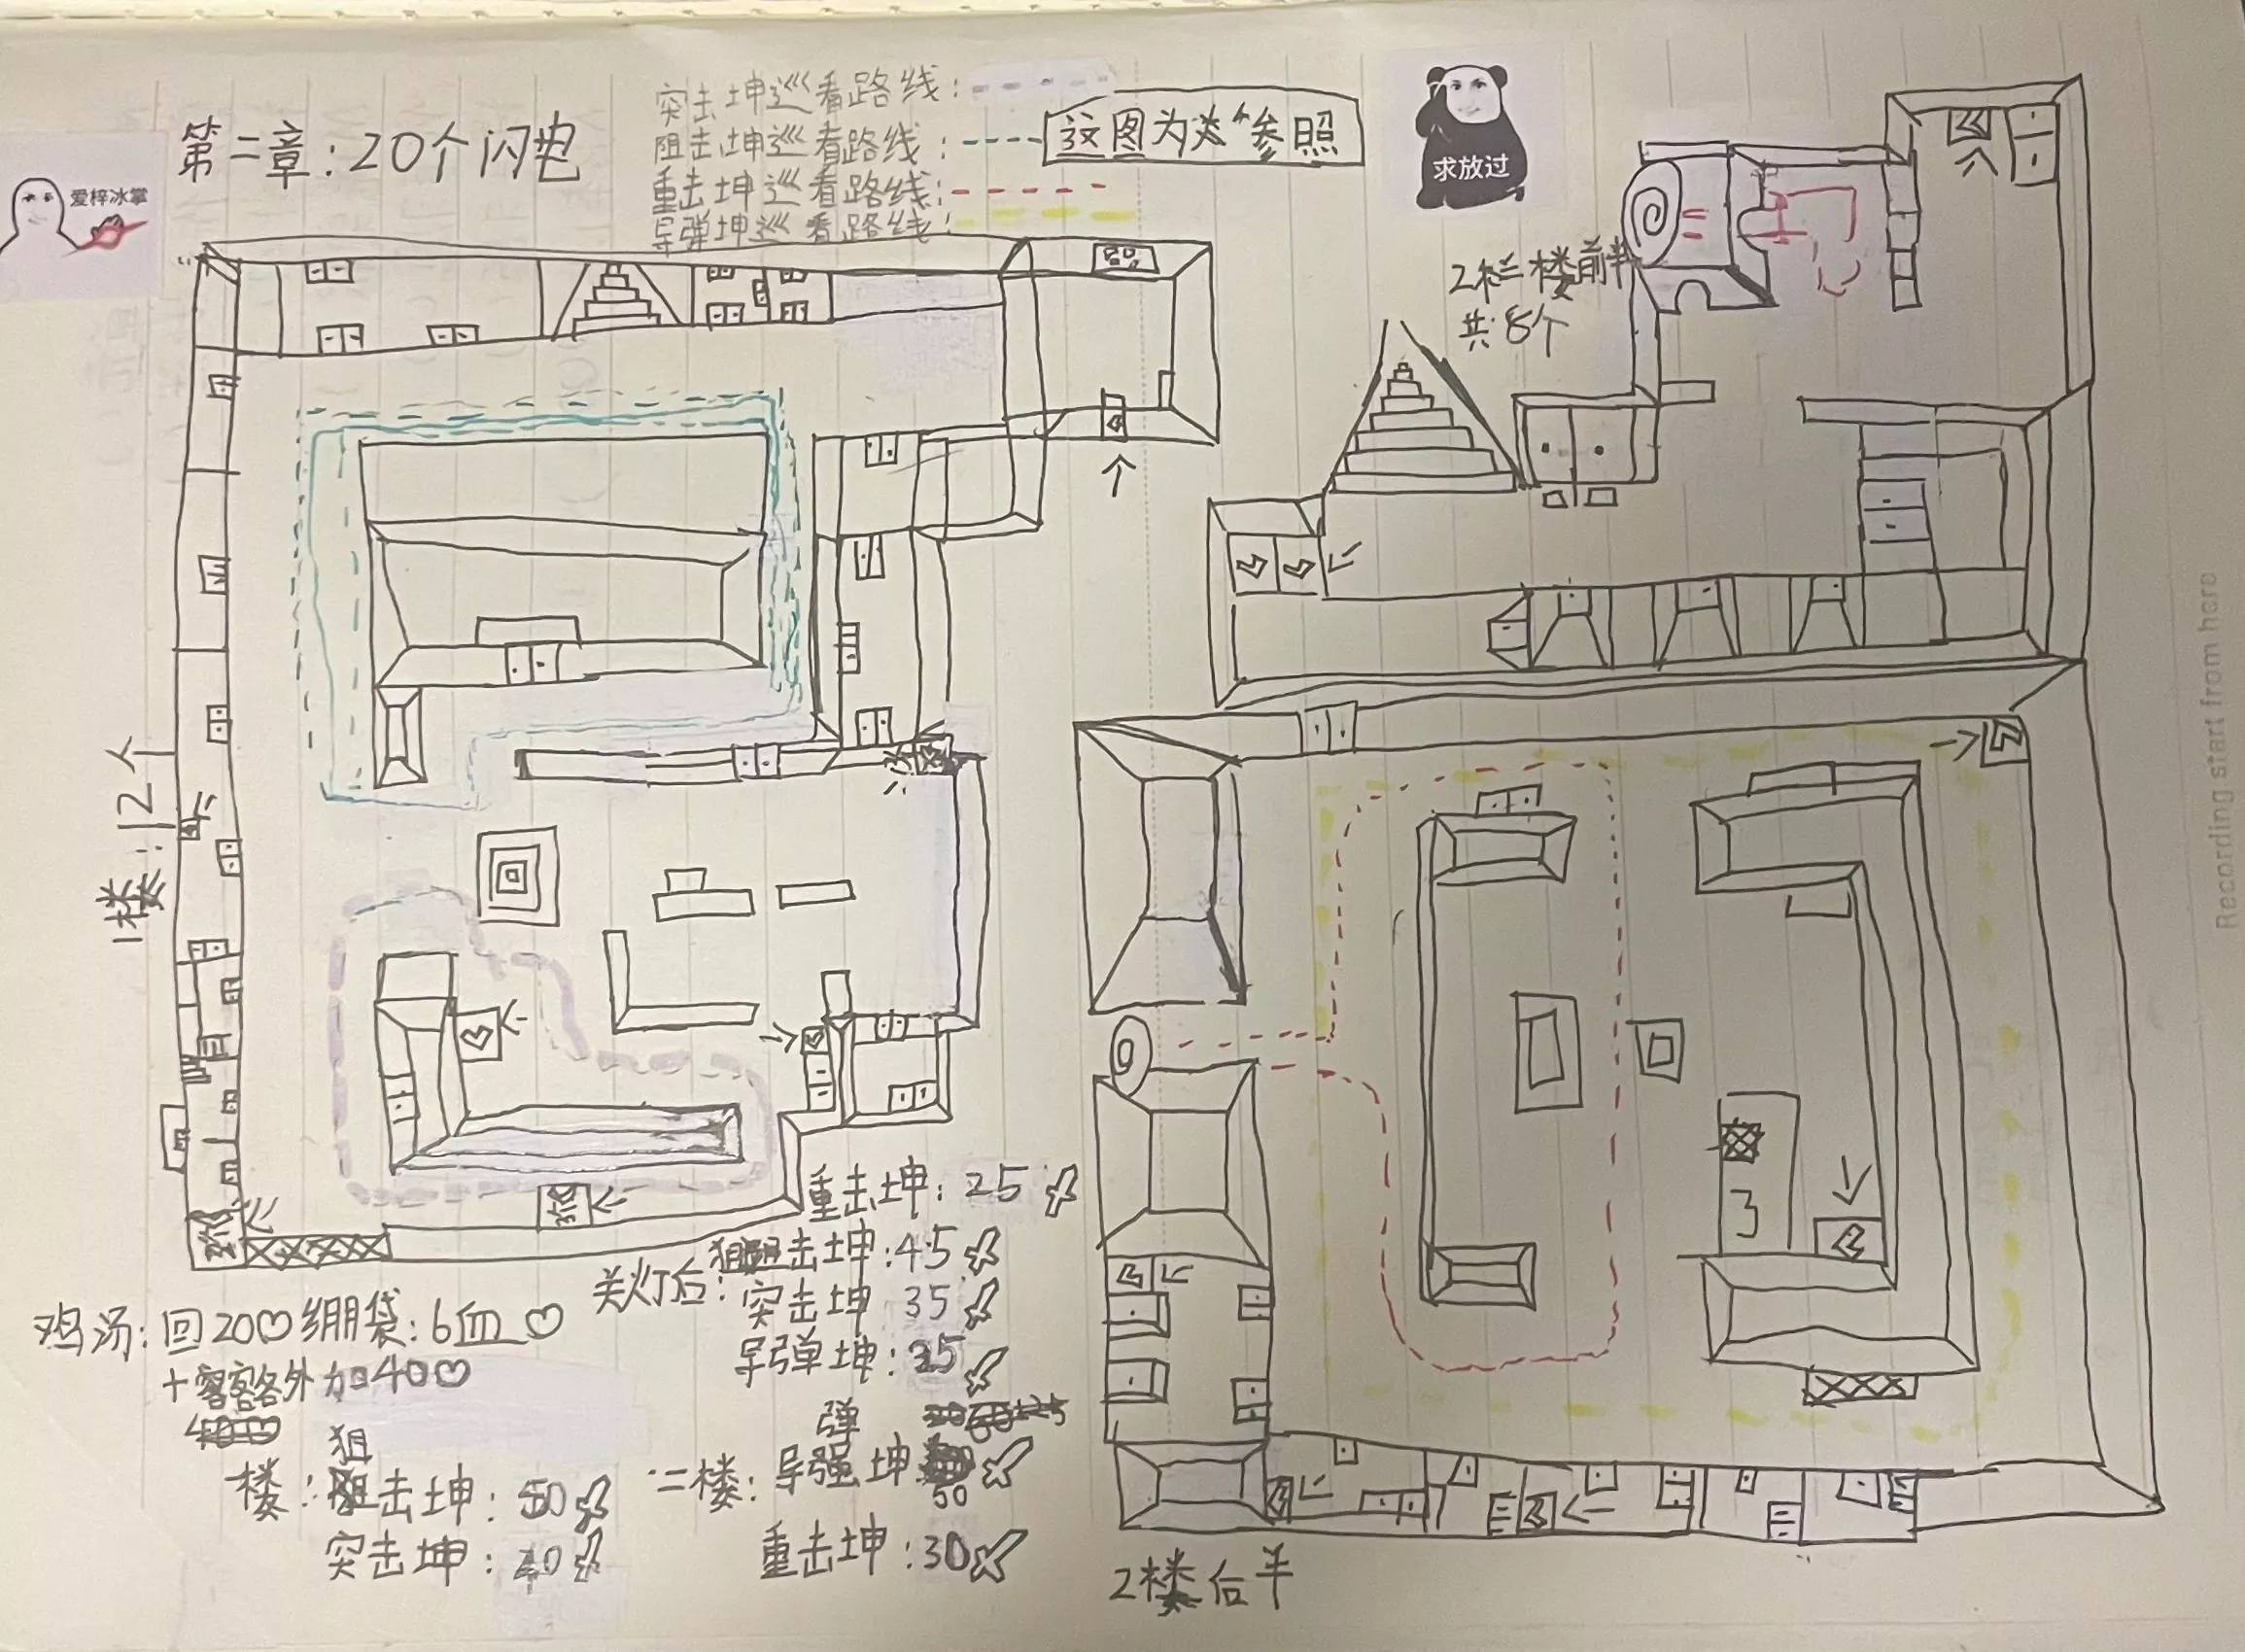 第二章:20个闪电
爱梓冰掌
突击坤巡看路线:
阻击坤巡看路线:
重击坤巡看路线:
导弹坤巡看路线:
这图为 参照
求放过
2 楼前半
共:8个
1楼:12个
Recording start from here
3
重击坤:25
关灯后:狙击坤:45
突击坤 35
导弹坤:35
鸡汤:回20♡绷袋:6血♡
+ 客客外加40♡
狙
一楼: 击坤:50
突击坤:40
弹
二楼:导强坤
50
重击坤:30
2楼后半